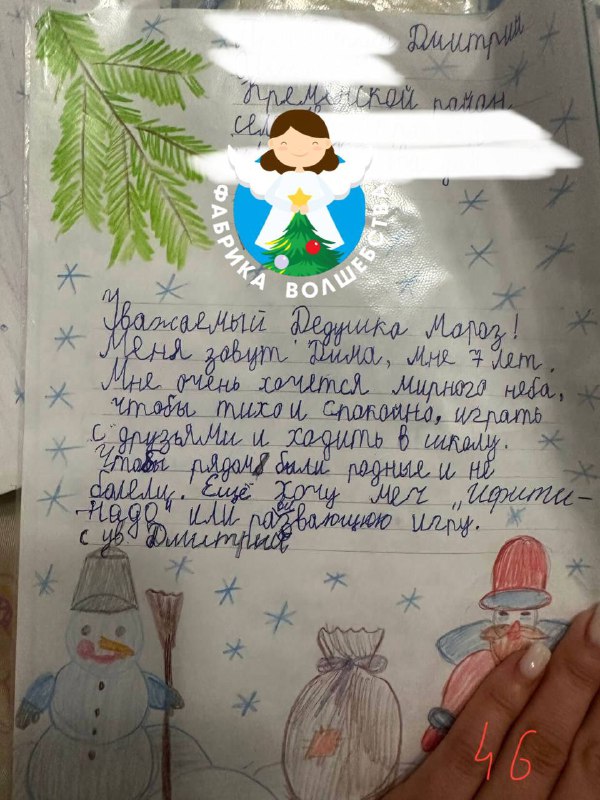 Дмитрий
Кременской район
сел
ФАБРИКА ВОЛШЕБСТВА
Уважаемый Дедушка Мороз!
Меня зовут Дима, мне 7 лет.
Мне очень хочется мирного неба,
чтобы тихо и спокойно, играть
с друзьями и ходить в школу.
Чтобы рядом были родные и не
болели. Ещё хочу меч "Ифити-
надо" или развивающую игру.
с ув. Дмитрий
46